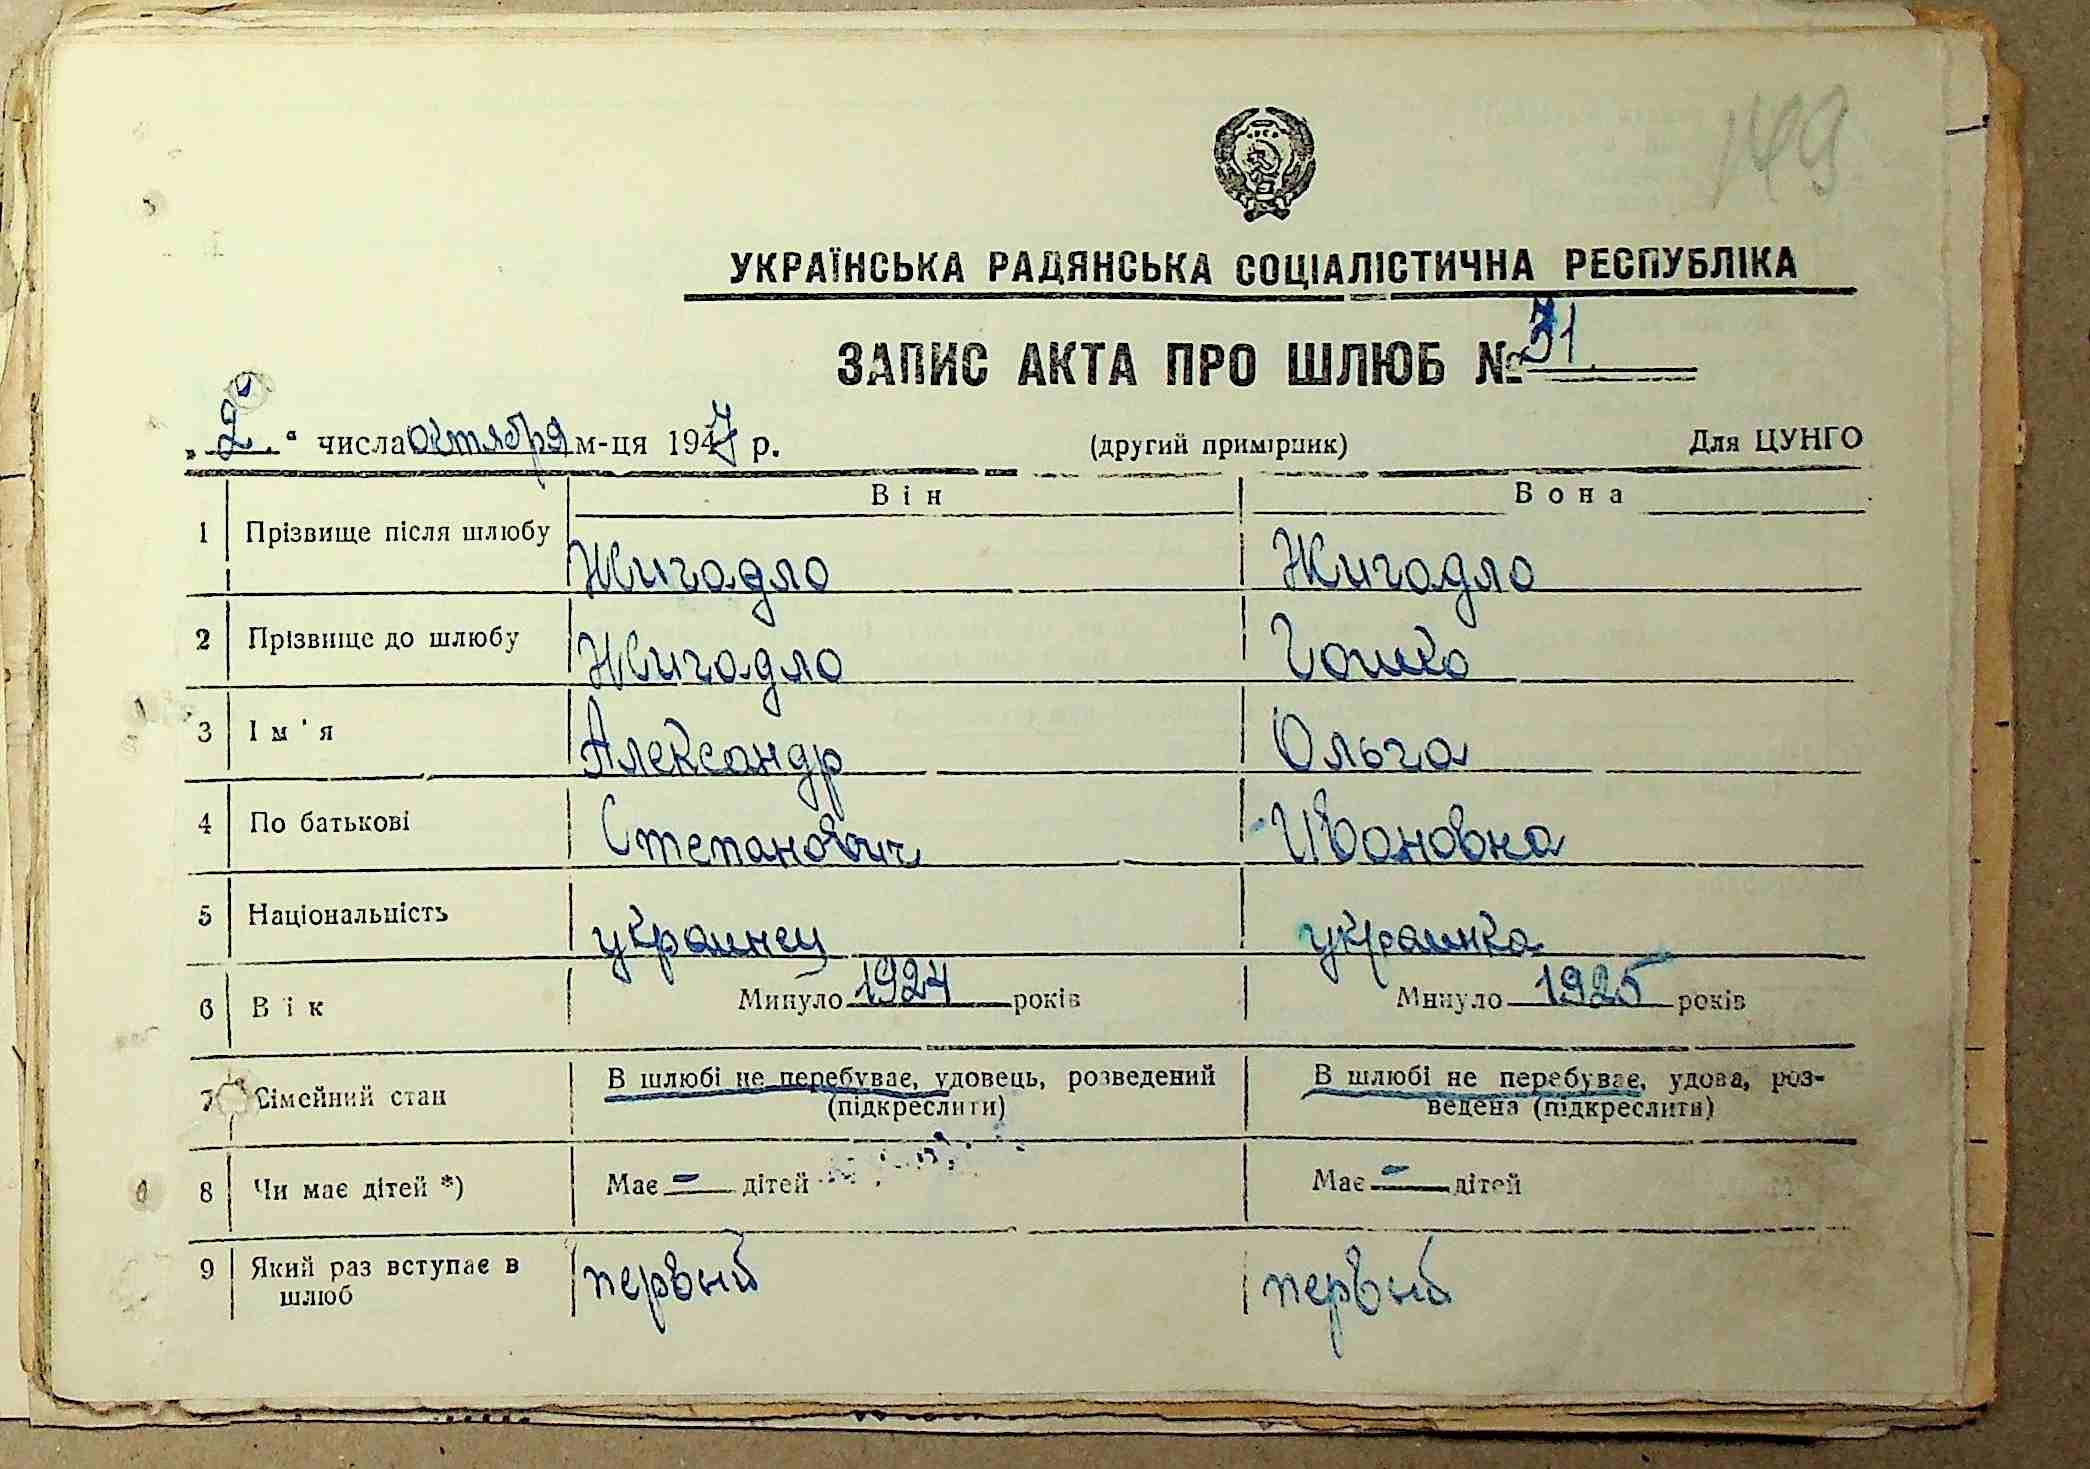 149
УКРАЇНСЬКА РАДЯНСЬКА СОЦІАЛІСТИЧНА РЕСПУБЛІКА
ЗАПИС АКТА ПРО ШЛЮБ № 31
„2“ числа октября м-ця 1947 р. (другий примірник) Для ЦУНГО
Він Вона
1 Прізвище після шлюбу Жигадло Жигадло
2 Прізвище до шлюбу Жигадло Гошко
3 Ім'я Александр Ольга
4 По батькові Степанович Ивановна
5 Національність украинец украинка
6 Вік Минуло 1924 років Минуло 1925 років
7 Сімейний стан В шлюбі не перебуває, удовець, розведений (підкреслити) В шлюбі не перебуває, удова, роз-
ведена (підкреслити)
8 Чи має дітей *) Має – дітей Має – дітей
9 Який раз вступає в шлюб первый первый